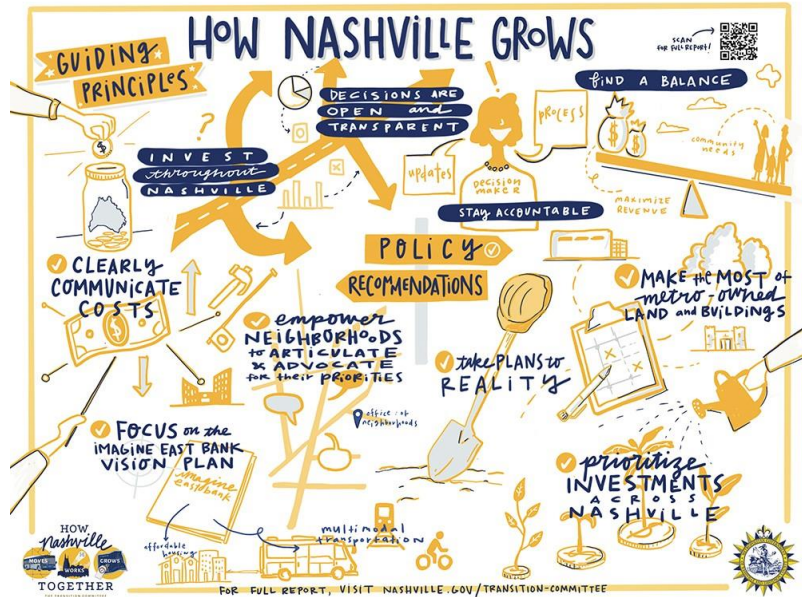 HOW NASHVILLE GROWS
SCAN
FOR FULL REPORT!
GUIDING
PRINCIPLES
INVEST
throughout
NASHVILLE
DECISIONS ARE
OPEN and
TRANSPARENT
updates
process
decision
maker
STAY ACCOUNTABLE
FIND A BALANCE
community
needs
MAXIMIZE
REVENUE
POLICY
RECOMMENDATIONS
CLEARLY
COMMUNICATE
COSTS
empower
NEIGHBORHOODS
to ARTICULATE
& ADVOCATE
for their PRIORITIES
office of
neighborhoods
take PLANS to
REALITY
MAKE the MOST of
metro-owned
LAND and BUILDINGS
FOCUS on the
IMAGINE EAST BANK
VISION PLAN
imagine
east bank
affordable
housing
multimodal
transportation
prioritize
INVESTMENTS
ACROSS
NASHVILLE
HOW
nashville
MOVES
WORKS
GROWS
TOGETHER
FOR FULL REPORT, VISIT NASHVILLE.GOV/TRANSITION-COMMITTEE